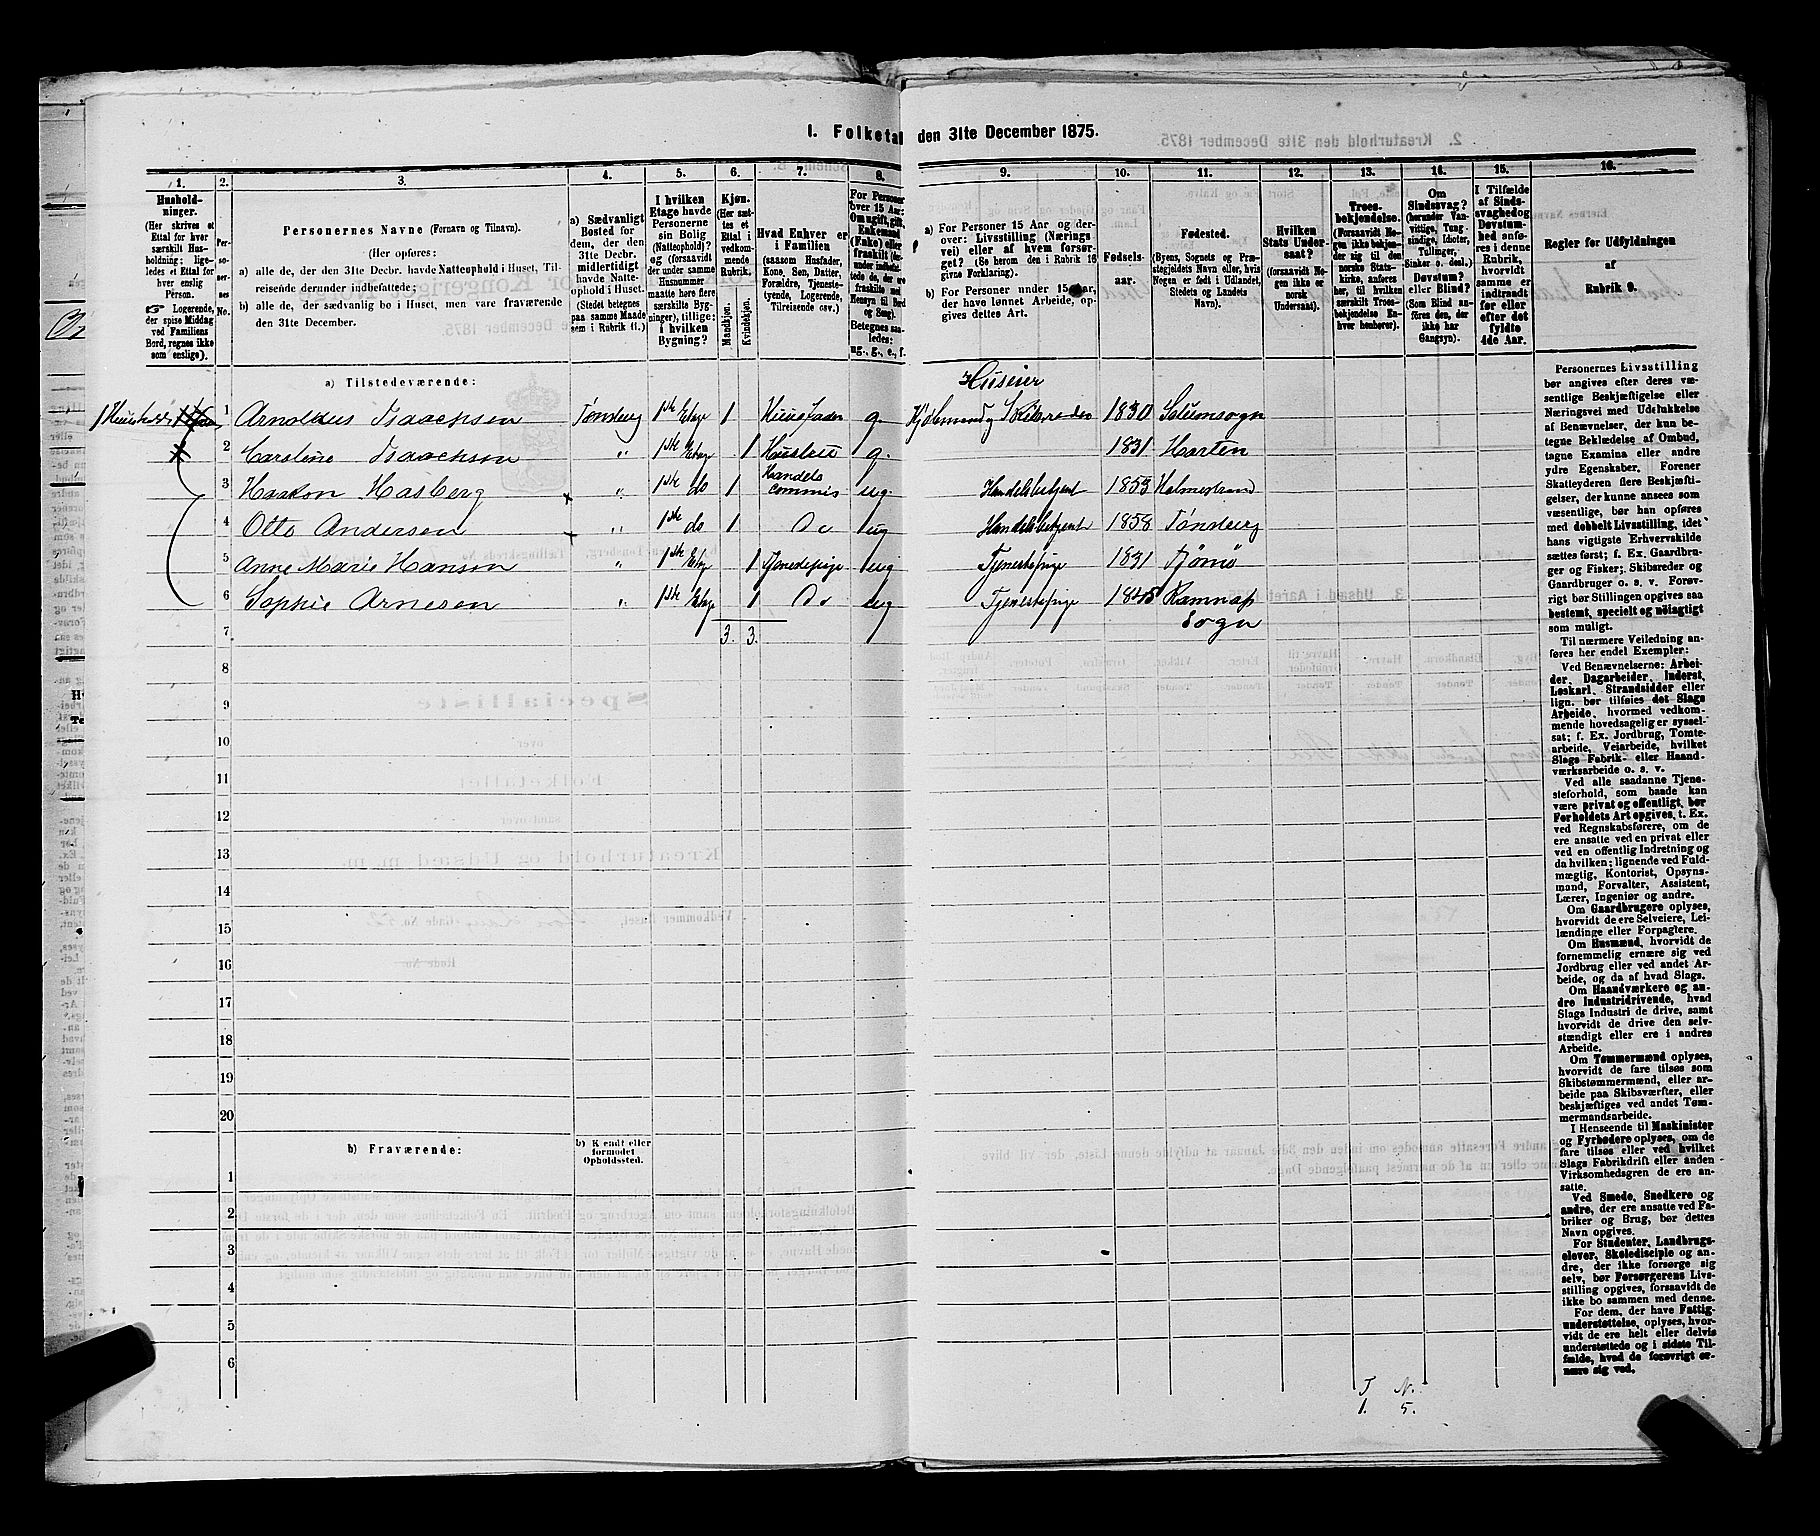 I. Folketal den 31te December 1875.
1. 2. 3. 4. 5. 6. 7. 8. 9. 10. 11. 12. 13. 14. 15. 16.
Husholdninger.
(Her skrives et
Ettal for hver
særskilt Husholdning;
ligeledes et Ettal for
hver enslig
Person.
Logerende,
der spise Middag
ved Familiens
Bord, regnes ikke
som enslige).
Personernes No.
Personernes Navne (Fornavn og Tilnavn).
(Her opføres:
a) alle de, der den 31te Decbr. havde Natteophold i Huset, Tilreisende
derunder indbefattede;
b) alle de, der sædvanlig bo i Huset, men vare fraværende
den 31te December.
a) Sædvanligt
Bosted for
dem, der den
31te Decbr.
midlertidigt
havde Natteophold
i Huset.
(Stedet betegnes
paa samme Maade
som i Rubrik 11.)
I hvilken
Etage havde
Personerne
sin Bolig
(Natteophold)?
og (forsaavidt
der under samme
Husnummer
maatte høre flere
særskilte Bygninger),
tillige:
i hvilken
Bygning?
Kjøn.
(Her sættes
et
Ettal i
vedkommende
Rubrik.
Mandkjøn.
Kvindekjøn.
Hvad Enhver er
i Familien
(saasom Husfader,
Kone, Søn, Datter,
Forældre, Tjenestetyende,
Logerende,
Tilreisende osv.)
For Personer
over 15 Aar:
Om ugift, gift,
Enkemand
(Enke) eller
fraskilt
Betegnes saaledes:
ug., g., e., f.
a) For Personer 15 Aar og derover:
Livsstilling (Næringsvei)
eller af hvem forsørget?
(Se herom den i Rubrik 16
givne Forklaring).
b) For Personer under 15 Aar,
der have lønnet Arbeide, opgives
dettes Art.
Fødselsaar.
Fødested.
(Byens, Sognets og Præstegjeldets
Navn eller, hvis
Nogen er født i Udlandet,
Stedets og Landets
Navn).
Hvilken
Stats Undersaat?
(forsaavidt Nogen
ikke er
norsk
Undersaat).
Troesbekjendelse.
(Forsaavidt Nogen
ikke bekjender
sig til den
norske Statskirke,
anføres
her, til hvilken
særskilt Troesbekjendelse
Enhver
henhører).
Om
Sindssvag?
(herunder Vanvittige,
Tungsindige,
Idioter,
Tullinger,
Sinker o. desl.)
Døvstum?
eller Blind?
(Som Blind anføres
den, der
ikke har
Gangsyn).
I Tilfælde
af Sindssvaghed
og
Døvstumhed
anføres
i denne
Rubrik,
hvorvidt
samme er
indtraadt
før eller
efter det
fyldte
4de Aar.
Regler for Udfyldningen
af
Rubrik 9.
a) Tilstedeværende:
Huseier
1 Arnoldus Isaachsen Tønsberg 1ste Etage 1 Huusfader g. Kjøbmand og Skibsreder 1830 Solumsogn
2 Caroline Isaachsen " 1ste Etage 1 Hustru g. 1831 Horten
3 Haakon Hasberg " 1ste do 1 Handels commis ug Handelsbetjent 1853 Holmestrand
4 Otto Andersen " 1ste do 1 Do ug Handelsbetjent 1858 Tønsberg
5 Anne Marie Hanson " 1ste Etage 1 Tjenestepige ug Tjenestepige 1831 Tjømø
6 Sophie Arnesen " 1ste Etage 1 Do ug Tjenestepige Ramnæs
7 3. 3. Sogn
8
9
10
11
12
13
14
15
16
17
18
19
20
b) Fraværende: b) Kjendt eller
formodet
Opholdssted.
1
2
3
4
5
6
Personernes Livsstilling
bør angives efter deres væsentlige
Beskjæftigelse eller
Næringsvei med Udelukkelse
af Benævnelser, der kun betegne
Beklædelse af Ombud,
tagne Examina eller andre
ydre Egenskaber. Forener
Skatteyderen flere Beskjæftigelser,
der kunne ansees som
væsentlige, bør han opføres
med dobbelt Livsstilling, idet
hans vigtigste Erhvervskilde
sættes først; f. Ex. Gaardbruger
og Fisker; Skibsreder og
Gaardbruger o. s. v. Forøvrigt
bør Stillingen opgives saa
bestemt, specielt og nøiagtigt
som muligt.
Til nærmere Veiledning anføres
her endel Exempler:
Ved Benævnelserne: Arbeider,
Dagarbeider, Inderst,
Løskarl, Strandsidder eller
lign. bør tilføies det Slags
Arbeide, hvormed vedkommende
hovedsagelig er sysselsat;
f. Ex. Jordbrug, Tomtearbeide,
Veiarbeide, hvilket
Slags Fabrik- eller Haandværksarbeide
o. s. v.
Ved alle saadanne Tjenesteforhold,
som baade kan
være privat og offentligt, bør
Forholdets Art opgives, t. Ex.
ved Regnskabsførere, om de
ere ansatte ved en privat eller
ved en offentlig Indretning og
da hvilken; lignende ved Fuldmægtig,
Kontorist, Opsynsmand,
Forvalter, Assistent,
Lærer, Ingeniør og andre.
Om Gaardbrugere oplyses,
hvorvidt de ere Selveiere, Leilændinge
eller Forpagtere.
Om Husmænd, hvorvidt de
fornemmelig ernære sig ved
Jordbrug eller ved andet Arbeide,
og da af hvad Slags.
Om Haandværkere og andre
Industridrivende, hvad
Slags Industri de drive, samt
hvorvidt de drive den selvstændigt
eller ere i andres
Arbeide.
Om Tømmermænd oplyses,
hvorvidt de fare tilsøs som
Skibstømmermænd, eller arbeide
paa Skibsværfter, eller
beskjæftiges ved andet Tømmermandsarbeide.
I Henseende til Maskinister
og Fyrbødere oplyses, om de
fare tilsøs eller ved hvilket
Slags Fabrikdrift eller anden
Virksomhedsgren de ere ansatte.
Ved Smede, Snedkere og
andre, der ere ansatte ved Fabriker
og Brug, bør dettes
Navn opgives.
For Studenter, Landbrugselever,
Skoledisciple og andre,
der ikke forsørge sig
selv, bør Forsørgerens Livsstilling
opgives, forsaavidt de
ikke bo sammen med denne.
For dem, der have Fattigunderstøttelse,
oplyses, hvorvidt
de ere helt eller delvis
understøttede og i sidste Tilfælde,
hvad de forøvrigt ernære
sig ved.
T N.
1. 5.